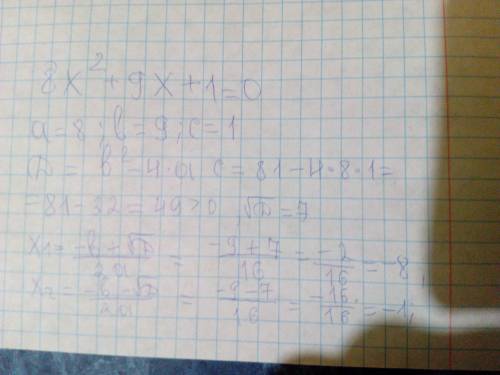 8x² + 9x + 1 = 0
a = 8; b = 9; c = 1
D = b² - 4·a c = 81 - 4·8·1 =
= 81 - 32 = 49 > 0 √D = 7
x₁ = (-b + √D)/2a = (-9 + 7)/16 = (-2)/16 = -8,
x₂ = (-b - √D)/2a = (-9 - 7)/16 = (-16)/16 = -1,